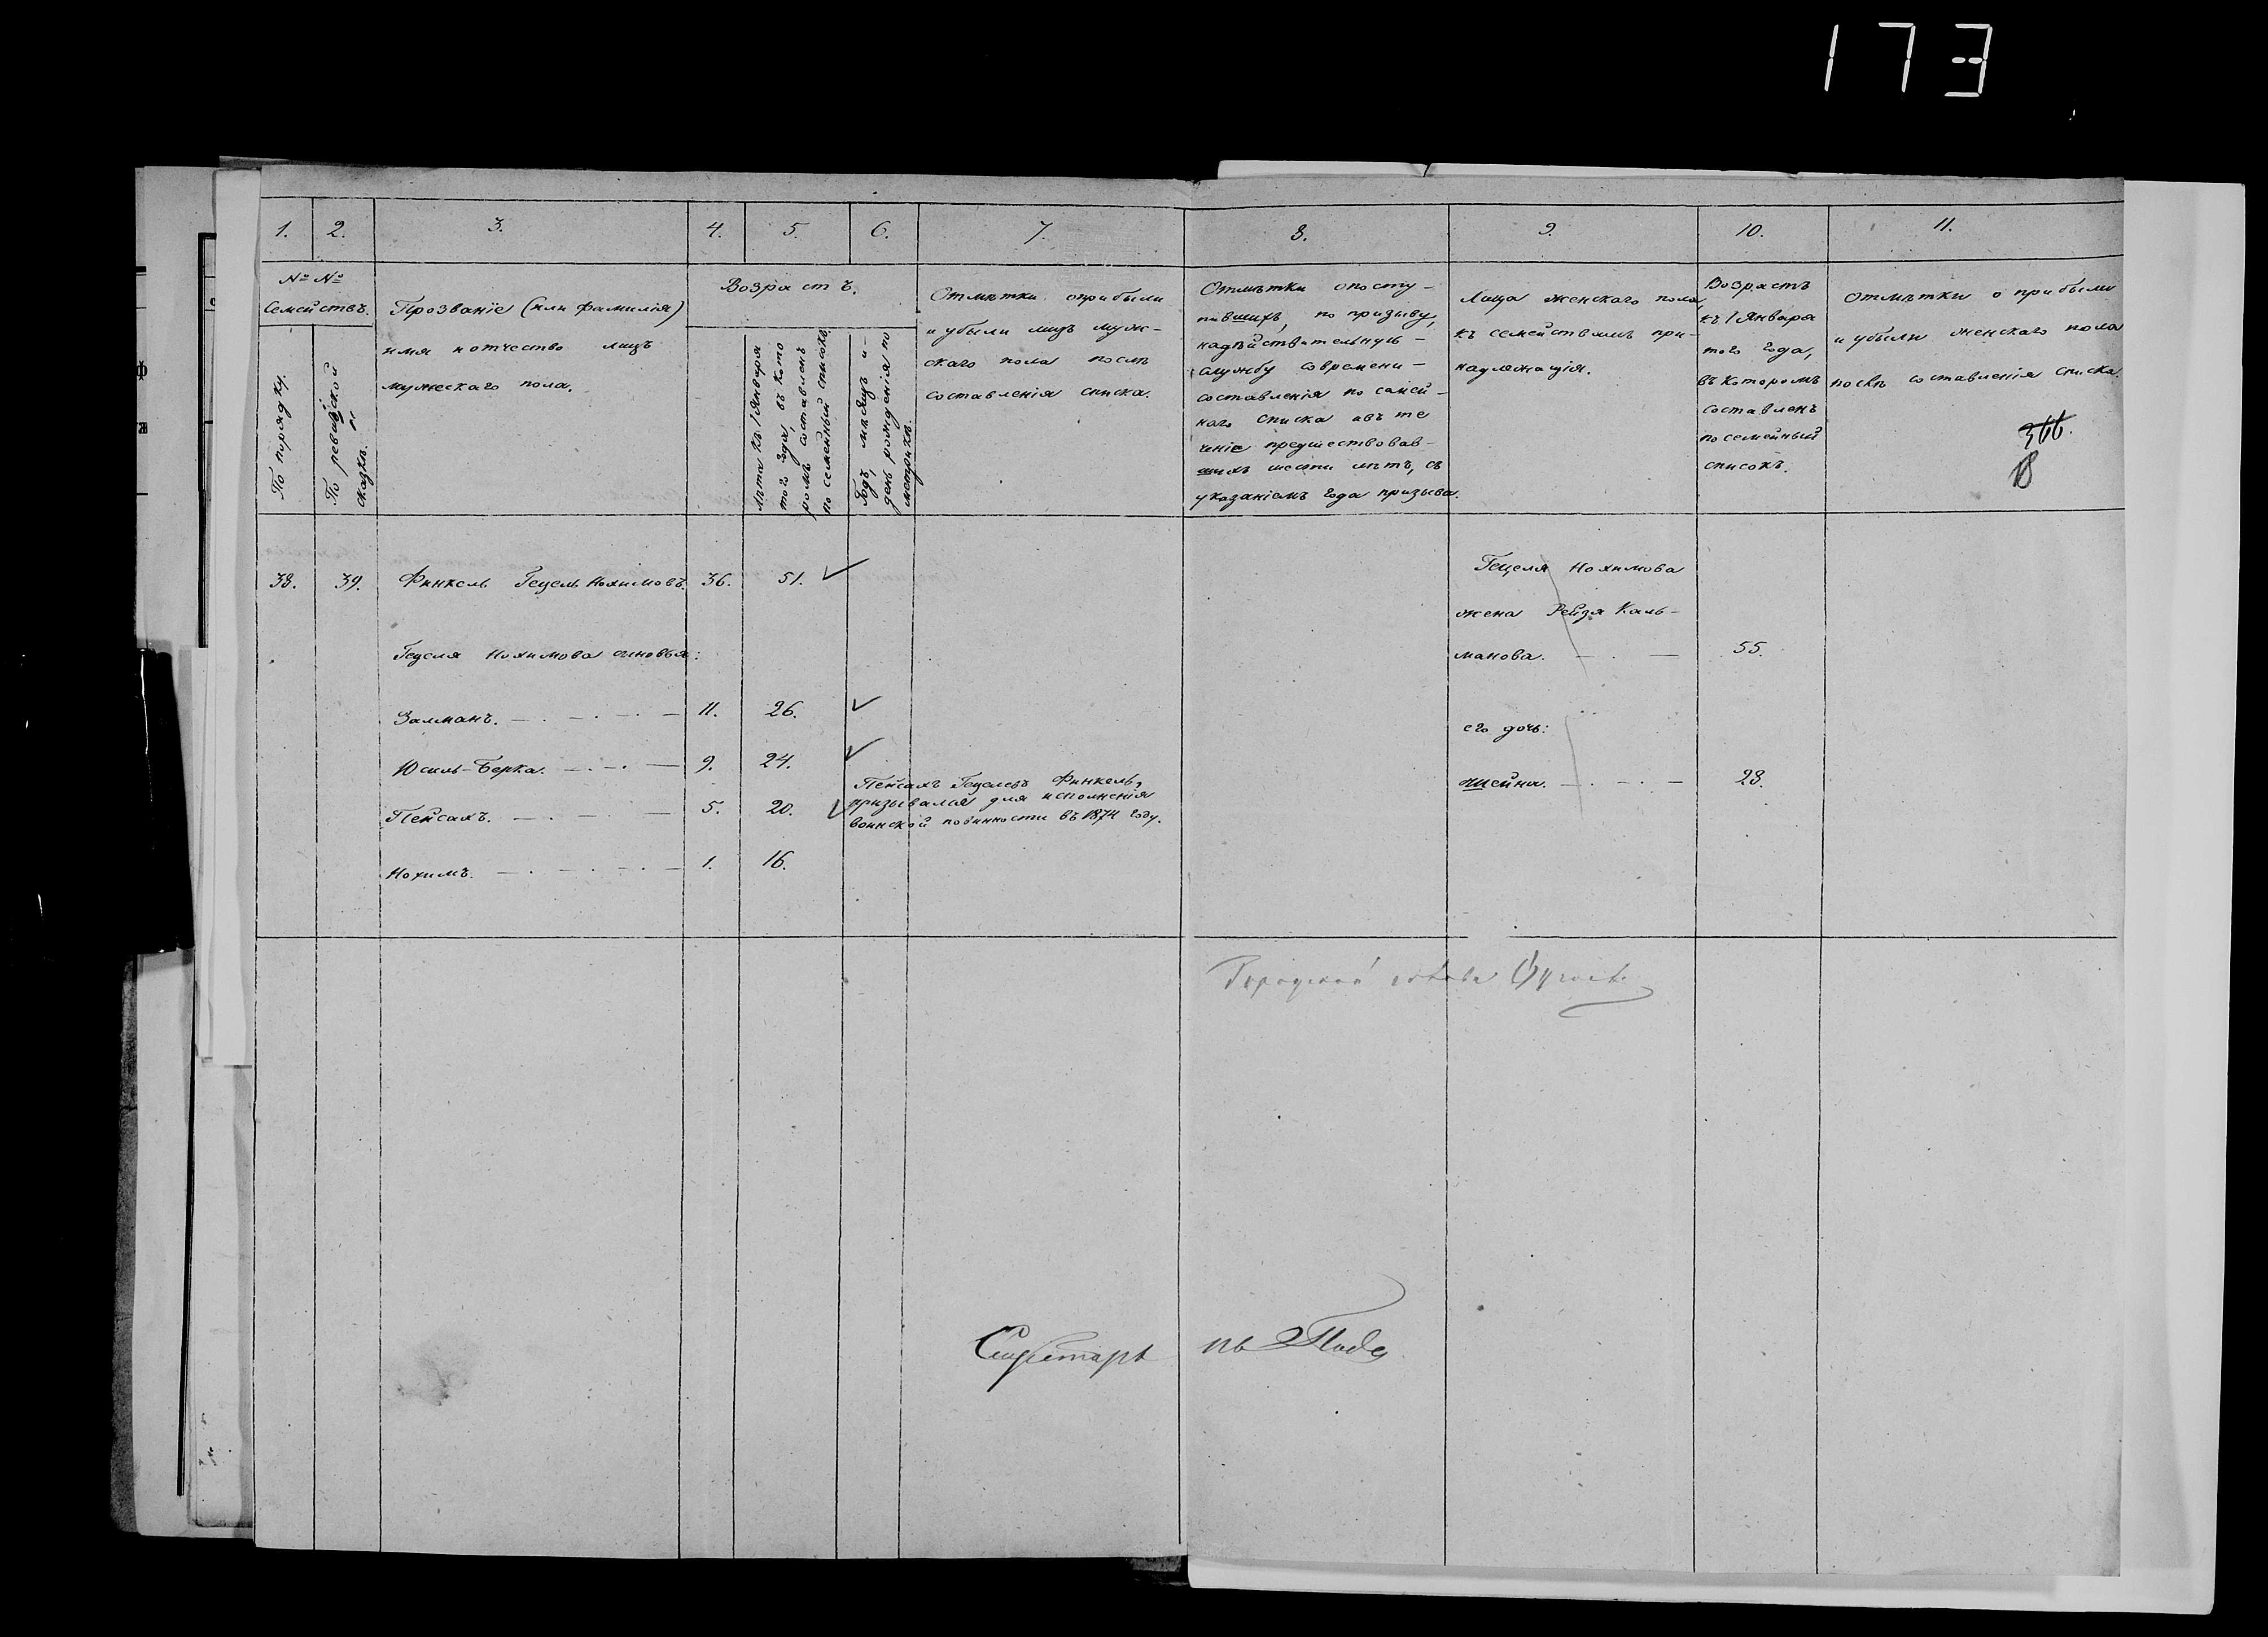 173
1. 2. 3. 4. 5. 6. 7. 8. 9. 10. 11.
№ №
Семействъ.
По порядку.
По ревизской
сказкѣ.
Прозваніе (или фамилія)
имя и отчество лицъ
мужескаго пола.
Возрастъ.
Лѣта къ 1 Января
того года, въ кото
ромъ составленъ
посемейный списокъ
Годъ, мѣсяцъ и-
день рожденія по
метрикѣ.
Отмѣтки о прибыли
и убыли лицъ муж-
скаго пола послѣ
составленія списка.
Отмѣтки о посту-
пившихъ, по призыву,
на дѣйствительную-
службу со времени-
составленія по самей-
наго списка а въ те
ченіе предшествовав-
шихъ шести лѣтъ, съ
указаніемъ года призыва.
Лица женскаго пола,
къ семействамъ при-
надлежащія.
Возрастъ
къ 1 Января
того года,
въ которомъ
составленъ
посемейный
списокъ.
Отмѣтки о прибыли
и убыли женскаго пола
послѣ составленія списка.
366.
38. 39. Финкель Гецель Нохимовъ. 36. 51.
Гецеля Нохимова сыновья:
Залманъ. 11. 26.
Юсиль-Берка. 9. 24.
Пейсахъ. 5. 20.
Нохимъ. 1. 16.
Пейсахъ Гецелевъ Финкель,
призывался для исполненія
воинской повинности въ 1874 году.
Гецеля Нохимова
жена Рейзя Каль-
манова. 55.
его дочь:
Шейна. 23.
Городской голова
Секретарь